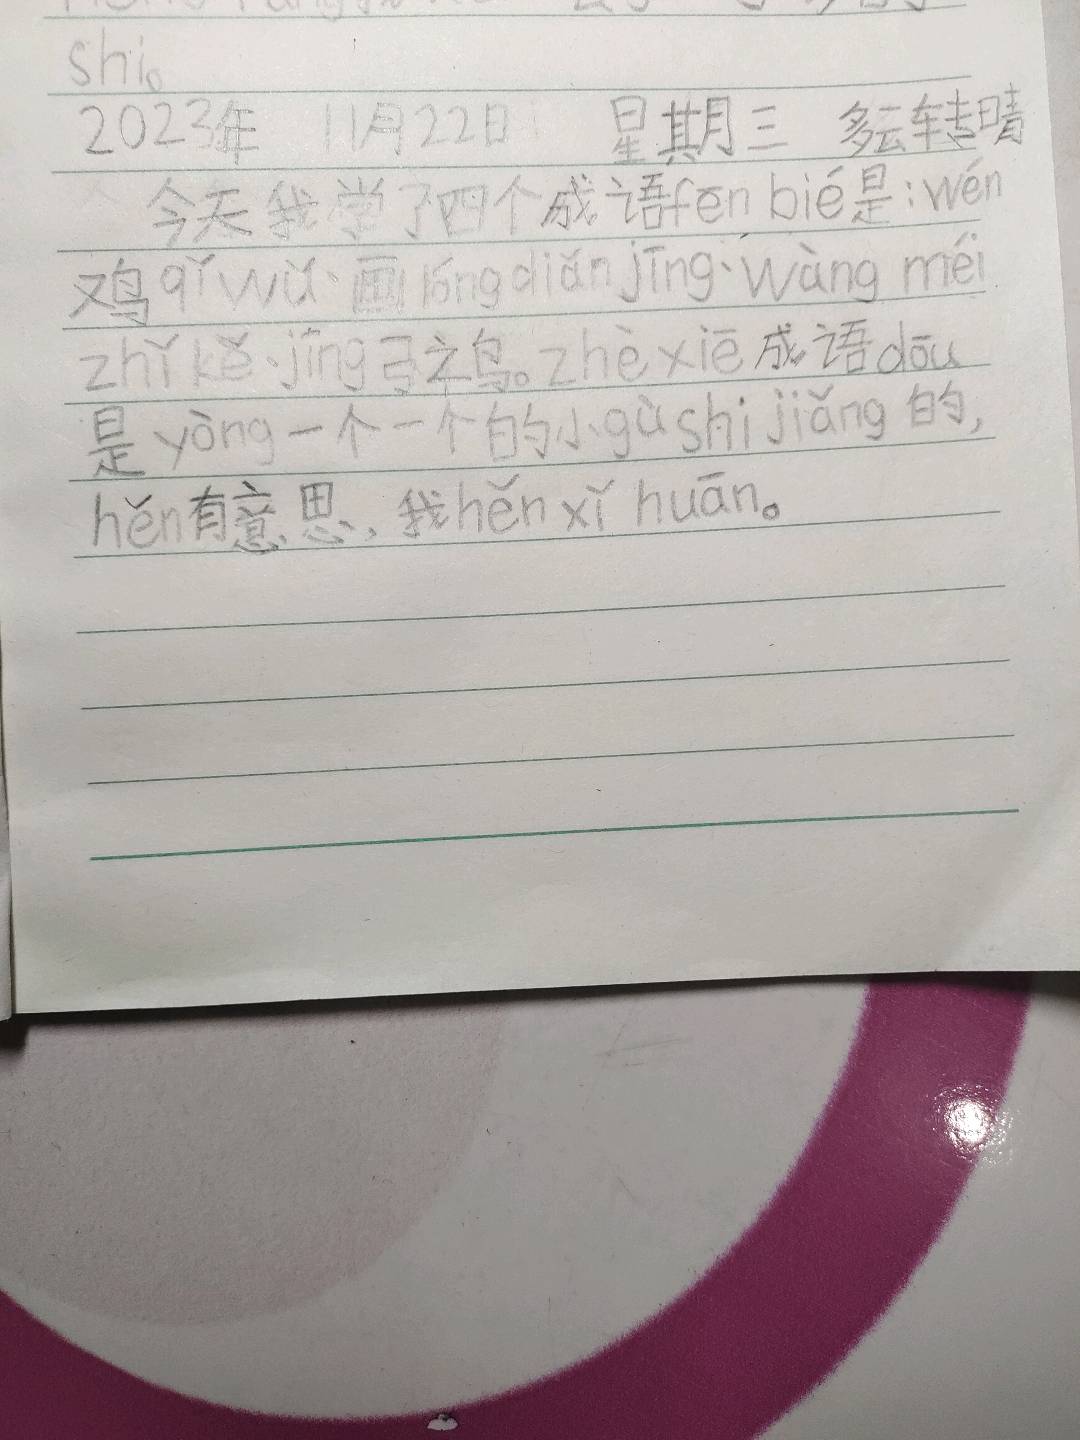 shi。
2023年 11月22日 星期三 多云转晴
今天我学了四个成语fēn bié是:wén
鸡qǐ wǔ、画lóng diǎn jīng、wàng méi
zhǐ kě、jīng弓之鸟。zhè xiē成语dōu
是yòng一个一个的小gù shi jiǎng的,
hěn有意思,我hěn xǐ huān。